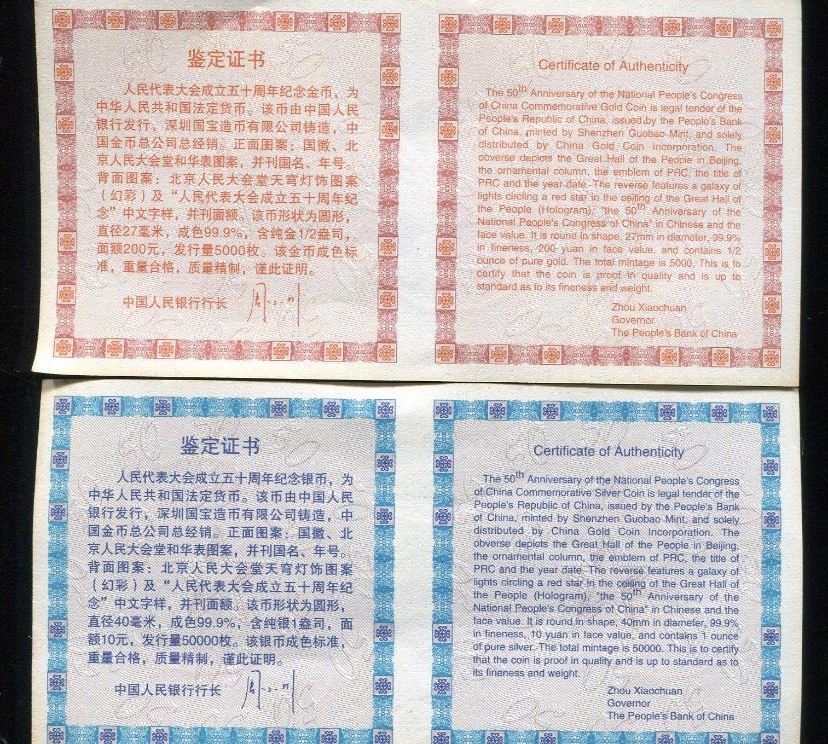 鉴定证书
人民代表大会成立五十周年纪念金币，为
中华人民共和国法定货币。该币由中国人民
银行发行，深圳国宝造币有限公司铸造，中
国金币总公司总经销。正面图案：国徽、北
京人民大会堂和华表图案，并刊国名、年号。
背面图案：北京人民大会堂天穹灯饰图案
（幻彩）及“人民代表大会成立五十周年纪
念”中文字样，并刊面额。该币形状为圆形，
直径27毫米，成色99.9%，含纯金1/2盎司，
面额200元，发行量5000枚。该金币成色标
准，重量合格，质量精制，谨此证明。
中国人民银行行长
Certificate of Authenticity
The 50th Anniversary of the National People's Congress
of China Commemorative Gold Coin is legal tender of the
People's Republic of China, issued by the People's Bank
of China, minted by Shenzhen Guobao Mint, and solely
distributed by China Gold Coin Incorporation. The
obverse depicts the Great Hall of the People in Beijing,
the ornamental column, the emblem of PRC, the title of
PRC and the year date. The reverse features a galaxy of
lights circling a red star in the ceiling of the Great Hall of
the People (Hologram), "the 50th Anniversary of the
National People's Congress of China" in Chinese and the
face value. It is round in shape, 27mm in diameter, 99.9%
in fineness, 200 yuan in face value, and contains 1/2
ounce of pure gold. The total mintage is 5000. This is to
certify that the coin is proof in quality and is up to
standard as to its fineness and weight.
Zhou Xiaochuan
Governor
The People's Bank of China
鉴定证书
人民代表大会成立五十周年纪念银币，为
中华人民共和国法定货币。该币由中国人民
银行发行，深圳国宝造币有限公司铸造，中
国金币总公司总经销。正面图案：国徽、北
京人民大会堂和华表图案，并刊国名、年号。
背面图案：北京人民大会堂天穹灯饰图案
（幻彩）及“人民代表大会成立五十周年纪
念”中文字样，并刊面额。该币形状为圆形，
直径40毫米，成色99.9%，含纯银1盎司，面
额10元，发行量50000枚。该银币成色标准，
重量合格，质量精制，谨此证明。
中国人民银行行长
Certificate of Authenticity
The 50th Anniversary of the National People's Congress
of China Commemorative Silver Coin is legal tender of the
People's Republic of China, issued by the People's Bank
of China, minted by Shenzhen Guobao Mint, and solely
distributed by China Gold Coin Incorporation. The
obverse depicts the Great Hall of the People in Beijing,
the ornamental column, the emblem of PRC, the title of
PRC and the year date. The reverse features a galaxy of
lights circling a red star in the ceiling of the Great Hall of
the People (Hologram), "the 50th Anniversary of the
National People's Congress of China" in Chinese and the
face value. It is round in shape, 40mm in diameter, 99.9%
in fineness, 10 yuan in face value, and contains 1 ounce
of pure silver. The total mintage is 50000. This is to certify
that the coin is proof in quality and is up to standard as to
its fineness and weight.
Zhou Xiaochuan
Governor
The People's Bank of China